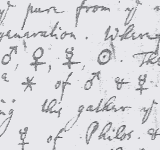 pure from yᵉ
generation. Where
♂, ♀, ☿, ☉. The
⚹ of ♂ & ☿
this gather yᵉ
☿ of Philos. &